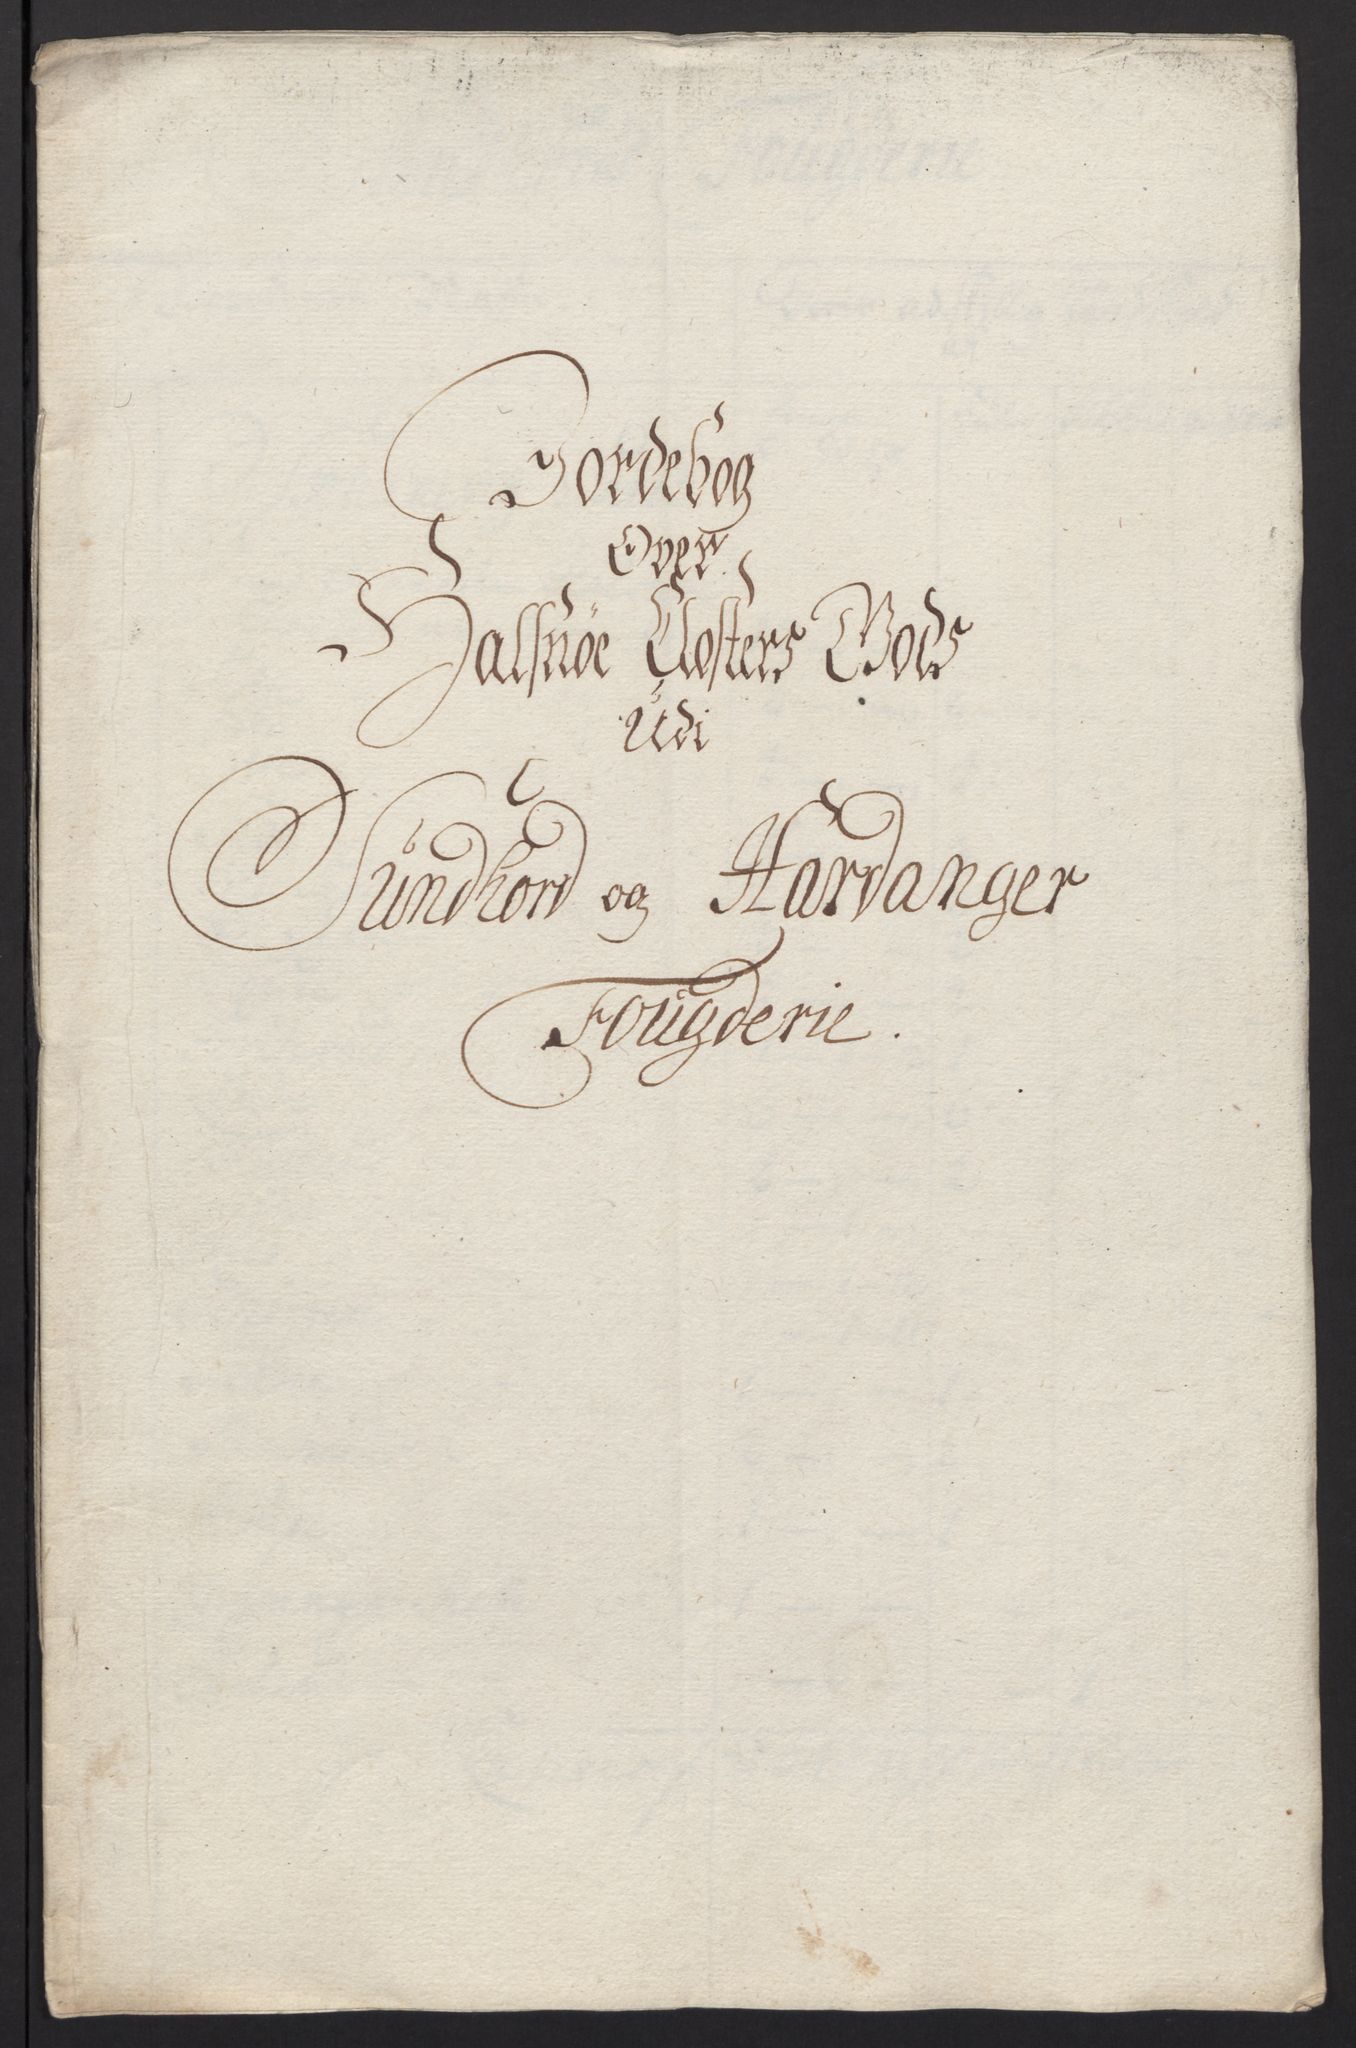 Jordebog
Over
Halsnöe Closters Gods
Udi
Sündhord og Hardanger
Fougderie.